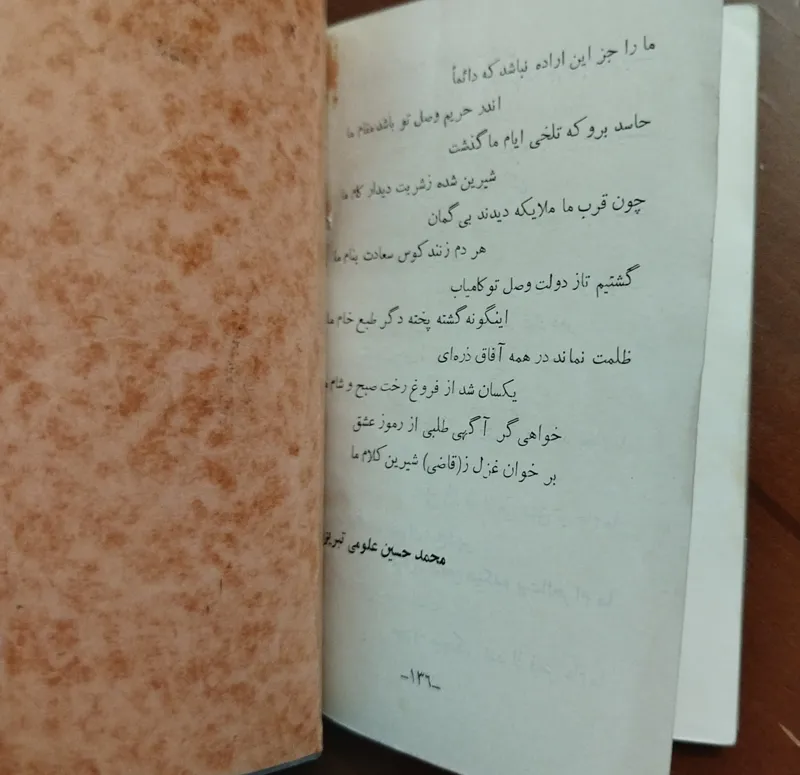 ما را جز این اراده نباشد که دائماً
اندر حریم وصل تو باشد مقام ما
حاسد برو که تلخی ایام ما گذشت
شیرین شده زشربت دیدار کام ما
چون قرب ما ملایکه دیدند بی گمان
هر دم زنند کوس سعادت بنام ما
گشتیم تاز دولت وصل تو کامیاب
اینگونه گشته پخته دگر طبع خام ما
ظلمت نماند در همه آفاق ذره‌ای
یکسان شد از فروغ رخت صبح و شام
خواهی گر آگهی طلبی از رموز عشق
بر خوان غزل ز(قاضی) شیرین کلام ما
محمد حسین علومی
-۱۳۶-